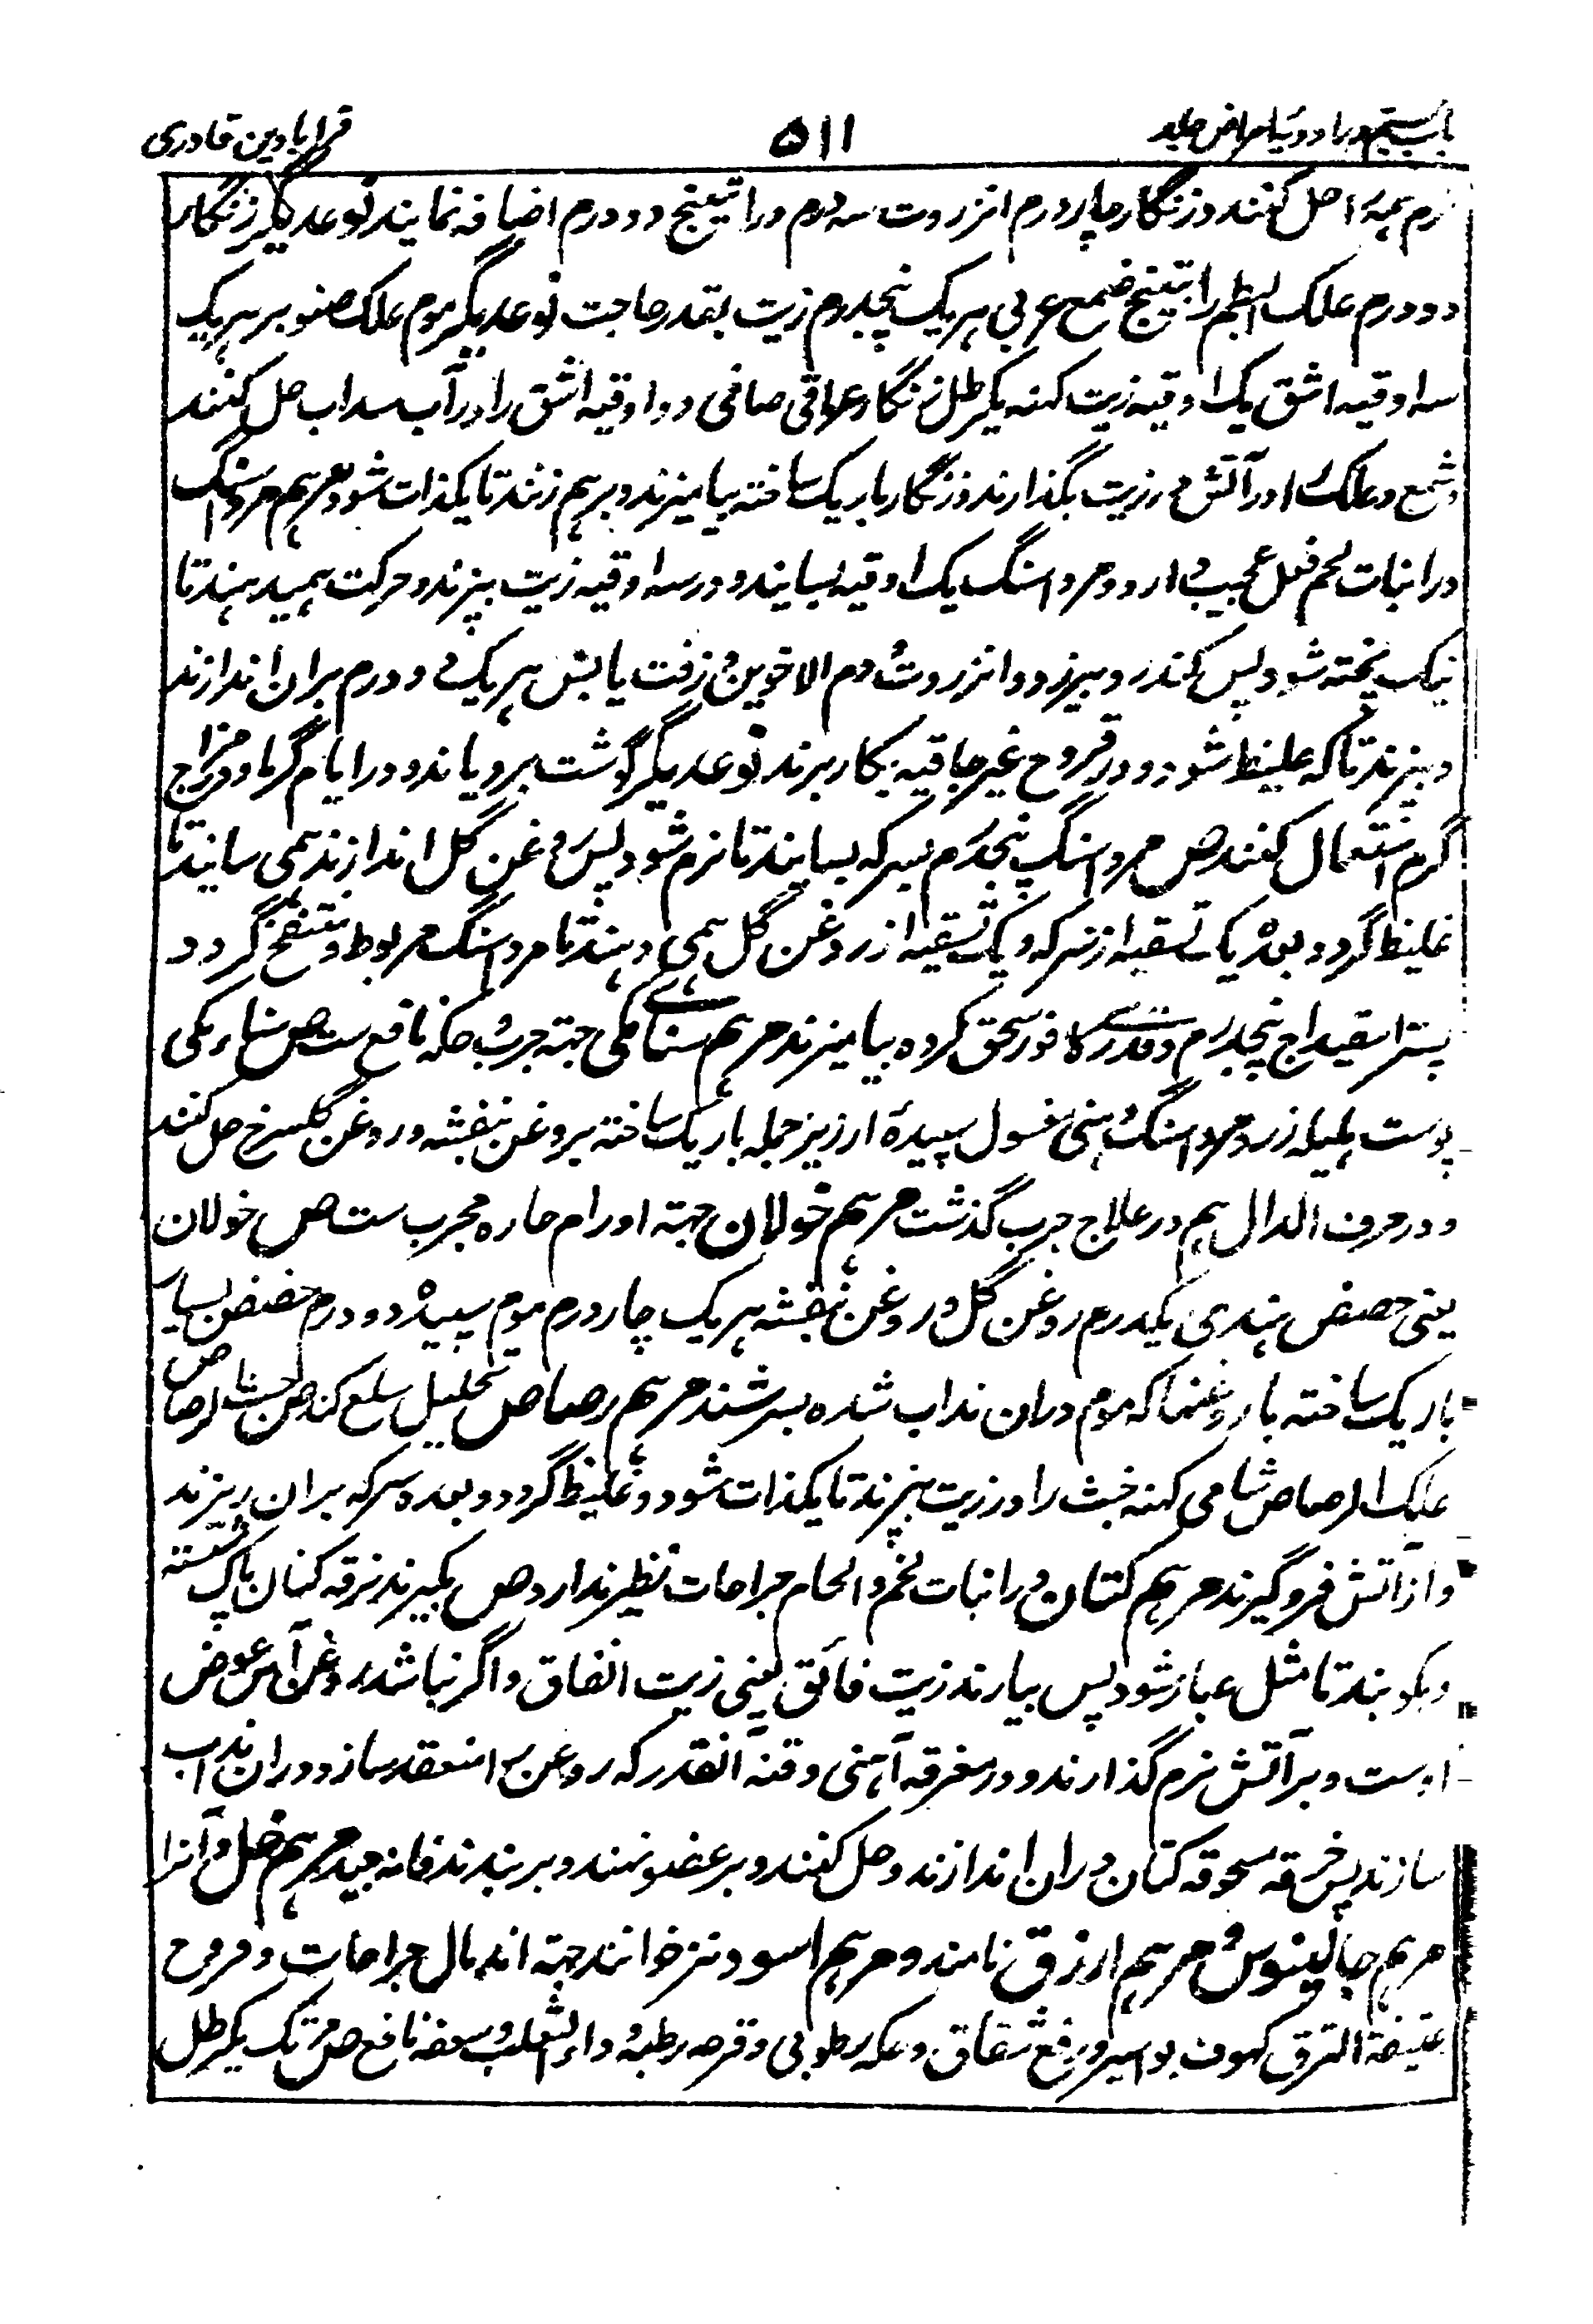 باب بستم در ادویه امراض جلد
۵۱۱
قرابادین قادری
نرم همه را حل کنند و زنگار چار درم انزروت سه درم و راتینج دو درم اضافه نمایند نوعدیگر زنگار
دو درم علک البطم راتینج صمغ عربی هر یک پنجدرم زیت بقدر حاجت نوعدیگر موم علک صنوبر هر یک
سه اوقیه اشق یک اوقیه زیت کهنه یکرطل زنگار عراقی صافی دو اوقیه اشق را در آب سداب حل کنند
و شمع و علک را در آتش در زیت بگذارند و زنگار باریک ساخته بیامیزند و برهم زنند تا یکذات شود مرهم مرداسنگ
در انبات لحم فعل عجیب دارد مرداسنگ یک اوقیه بسایند و در سه اوقیه زیت بپزند و حرکت همیدهند تا
نیک پخته شود پس کندر و بیرزد و انزروت و دم الاخوین و زفت یابس هر یک دو درم بران اندازند
و بپزند تا که غلیظ شود و در قروح غیر جافیه بکار برند نوعدیگر گوشت برویاند و در ایام گرما و مزاج
گرم استعمال کنند ص مرداسنگ پنجدرم بسرکه بسایند تا نرم شود پس روغن گل اندازند همی سایند تا
غلیظ گردد بعده یک تسقیه از سرکه و یک تسقیه از روغن گل همی دهند تا مرداسنگ مربوط و منتفخ گردد
پستر اسفیداج پنجدرم و قدرے کافور سحق کرده بیامیزند مرهم سنا مکی جهته جرب و حکه نافع ست ص سناء مکی
پوست هلیله زرد مرداسنگ هنی مغسول سپیدهٔ ارزیز جمله باریک ساخته بروغن بنفشه و روغن گلسرخ حل کنند
و در حرف الدال هم در علاج جرب گذشت مرهم خولان جهته اورام حاره مجرب ست ص خولان
یعنی حضض هندی یکدرم روغن گل و روغن بنفشه هر یک چار درم موم سپید دو درم حضض بسیار
باریک ساخته با روغنها که موم دران نداب شده بسرشند مرهم رصاص تحلیل سلع کند ص خبث الرصاص
علک الرصاص شامی کهنه خبث را در زیت بپزند تا یکذات شود و غلیظ گردد و بعده سرکه بران ریزند
و از آتش فرو گیرند مرهم کتان در انبات لحم و الحام جراحات نظیر ندارد ص بگیرند خرقه کتان پاک شسته
و بکوبند تا مثل غبار شود پس بیارند زیت فائق یعنی زیت انفاق و اگر نباشد روغن آس عوض
اوست و بر آتش نرم گذارند و در مغرفه آهنی وقنه آنقدر که روغن را منعقد سازد دران نداب
سازند پس خرقه مسحوقه کتان دران اندازند و حل کنند و بر عضو نهند و بر بندند فانه جید مرهم خل و آنرا
مرهم جالینوس و مرهم ازرق نامند و مرهم اسود نیز خوانند جهته اندمال جراحات و قروح
عفیفة الترق کهوف بواسیر و رفع شقاق و حکه رطوبی و قرحه رطبه و داء الثعلب و سعفه نافع ص مرتک یکرطل